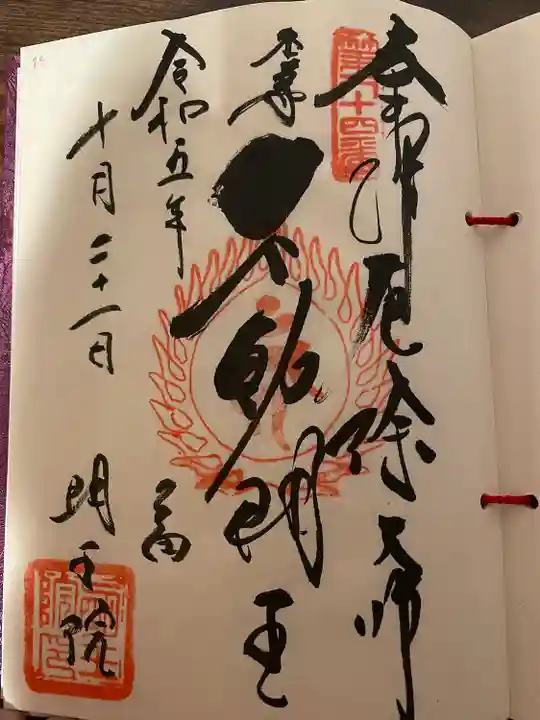 奉拝
厄除大師
本尊
不動明王
令和五年
十月二十一日
明王院